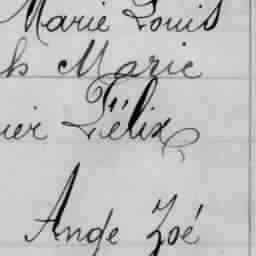 Marie Louis
h Marie
ier Félix
Ange Zoé